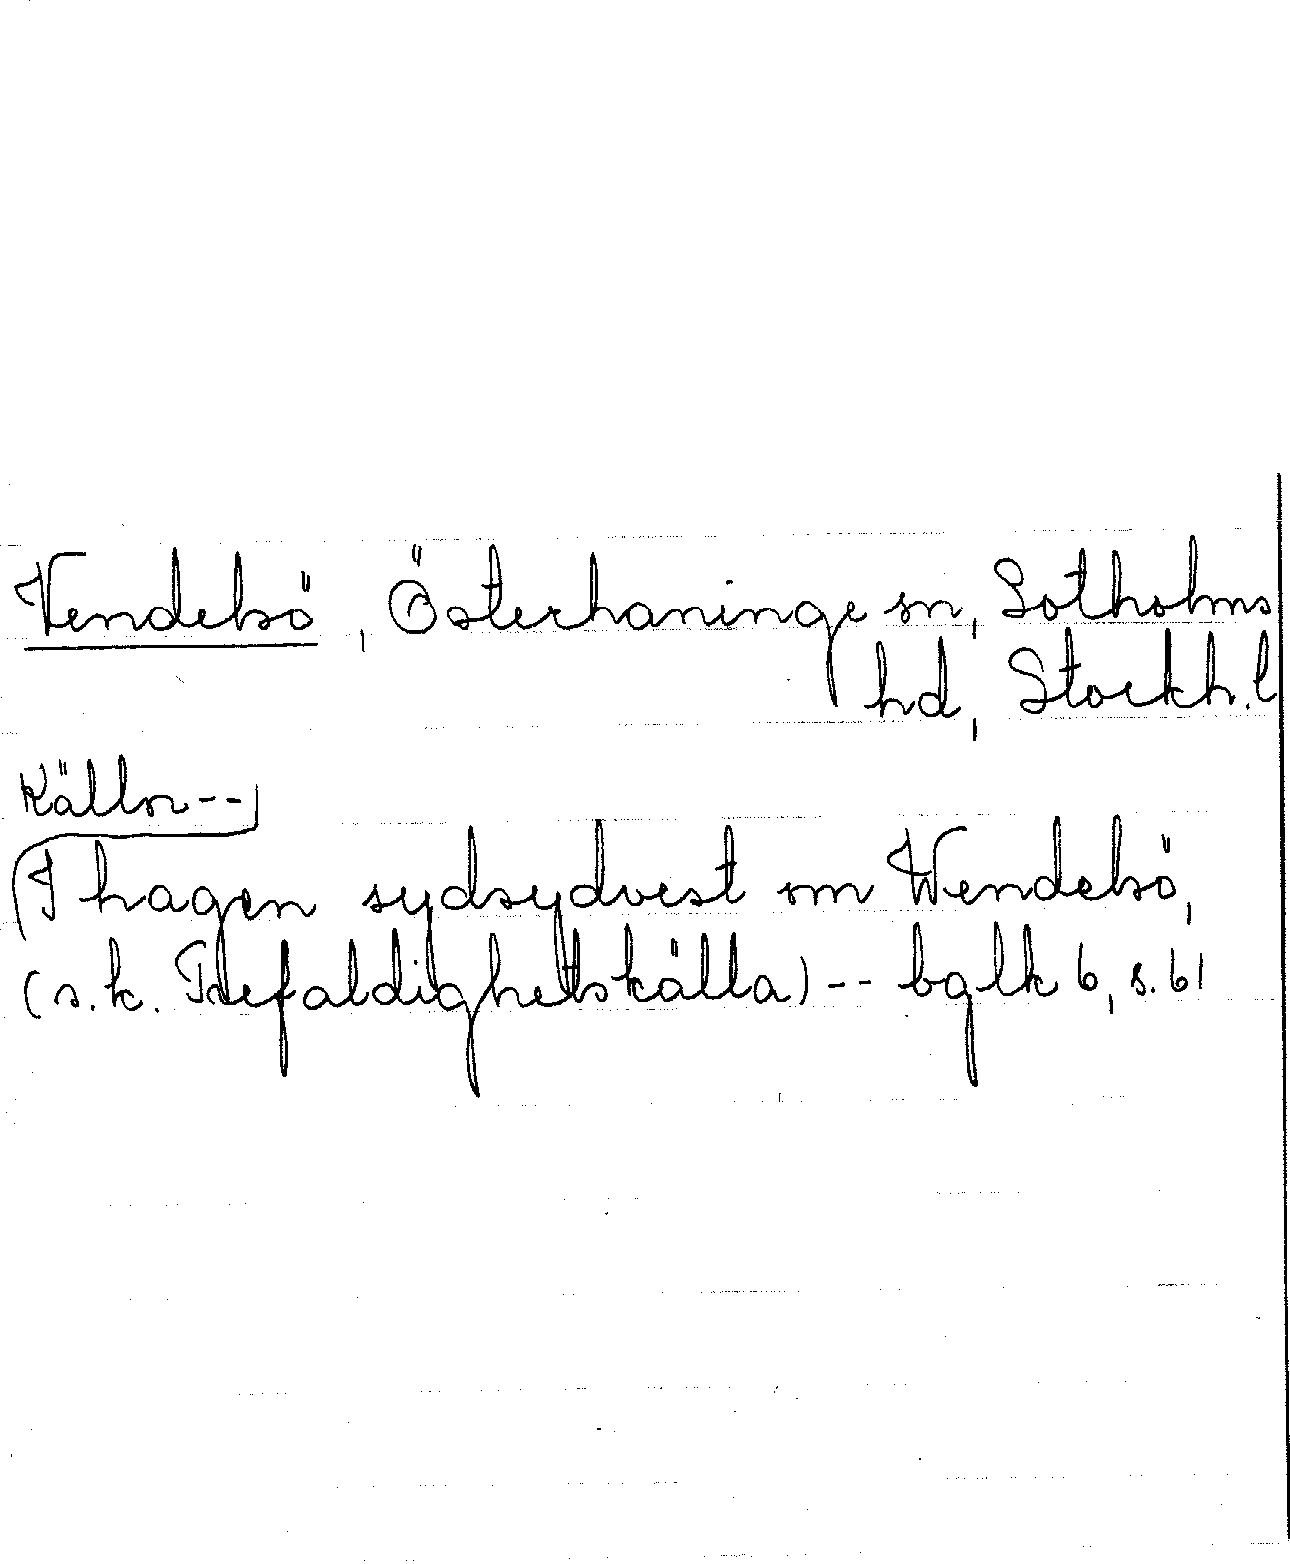 Vendelsö, Österhaninge sn, Sotholms
hd, Stockh. l
Källor--
I hagen sydsydvest om Wendelsö,
(s.k. Trefaldighetskälla) -- bglk 6, s. 61